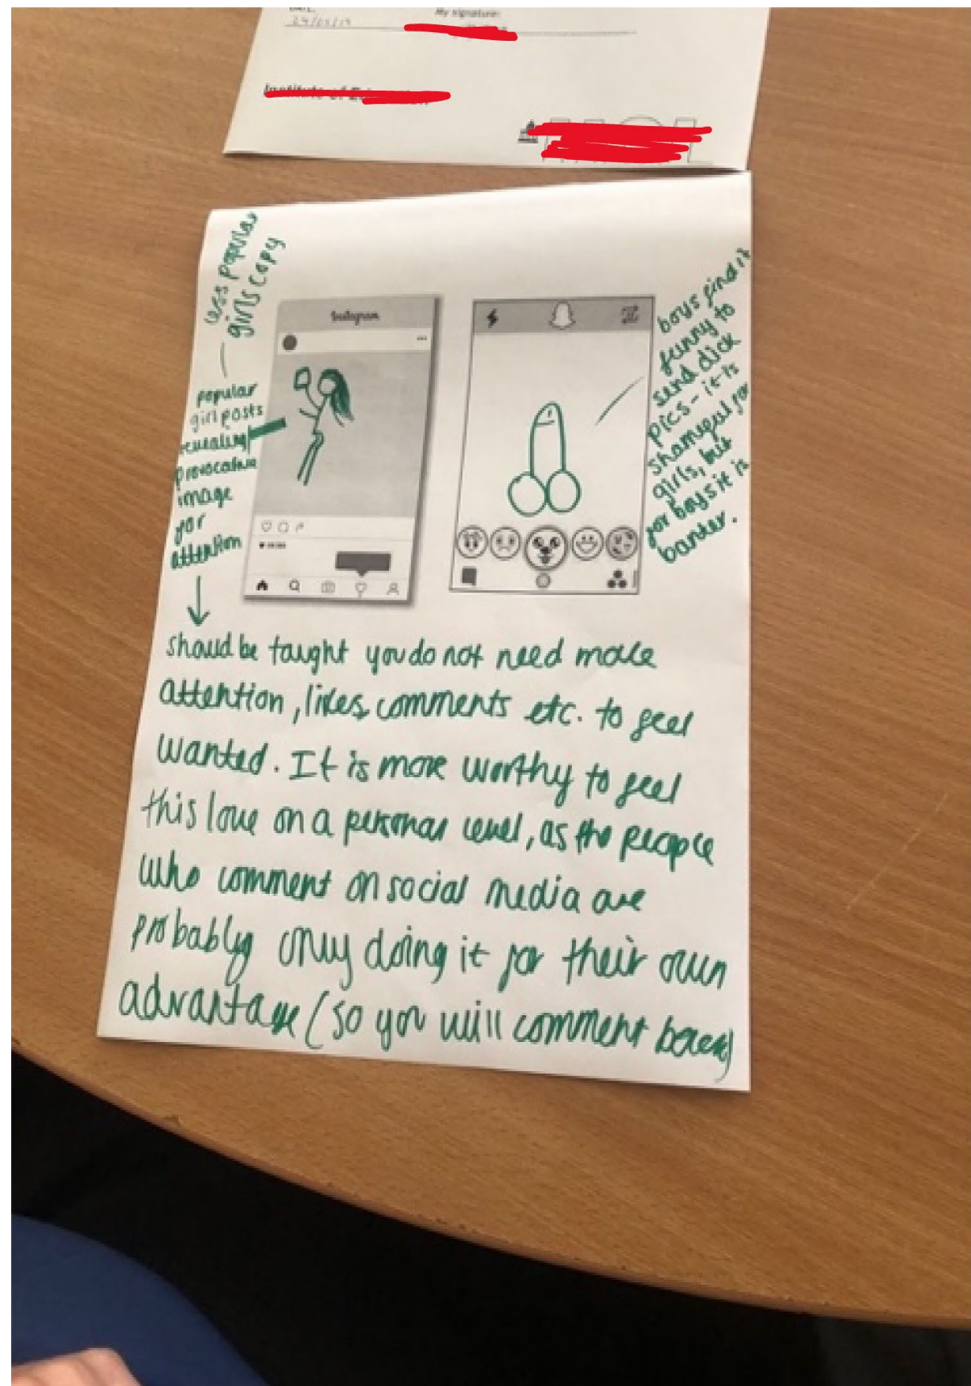 DATE:
My signature:
29/03/19
less popular
girls copy
popular
girl posts
revealing/
provocative
image
for
attention
Instagram
boys find it
funny to
send dick
pics - it is
shameful for
girls, but
for boys it is
banter.
should be taught you do not need male
attention, likes, comments etc. to feel
wanted. It is more worthy to feel
this love on a personal level, as the people
who comment on social media are
probably only doing it for their own
advantage (so you will comment back)